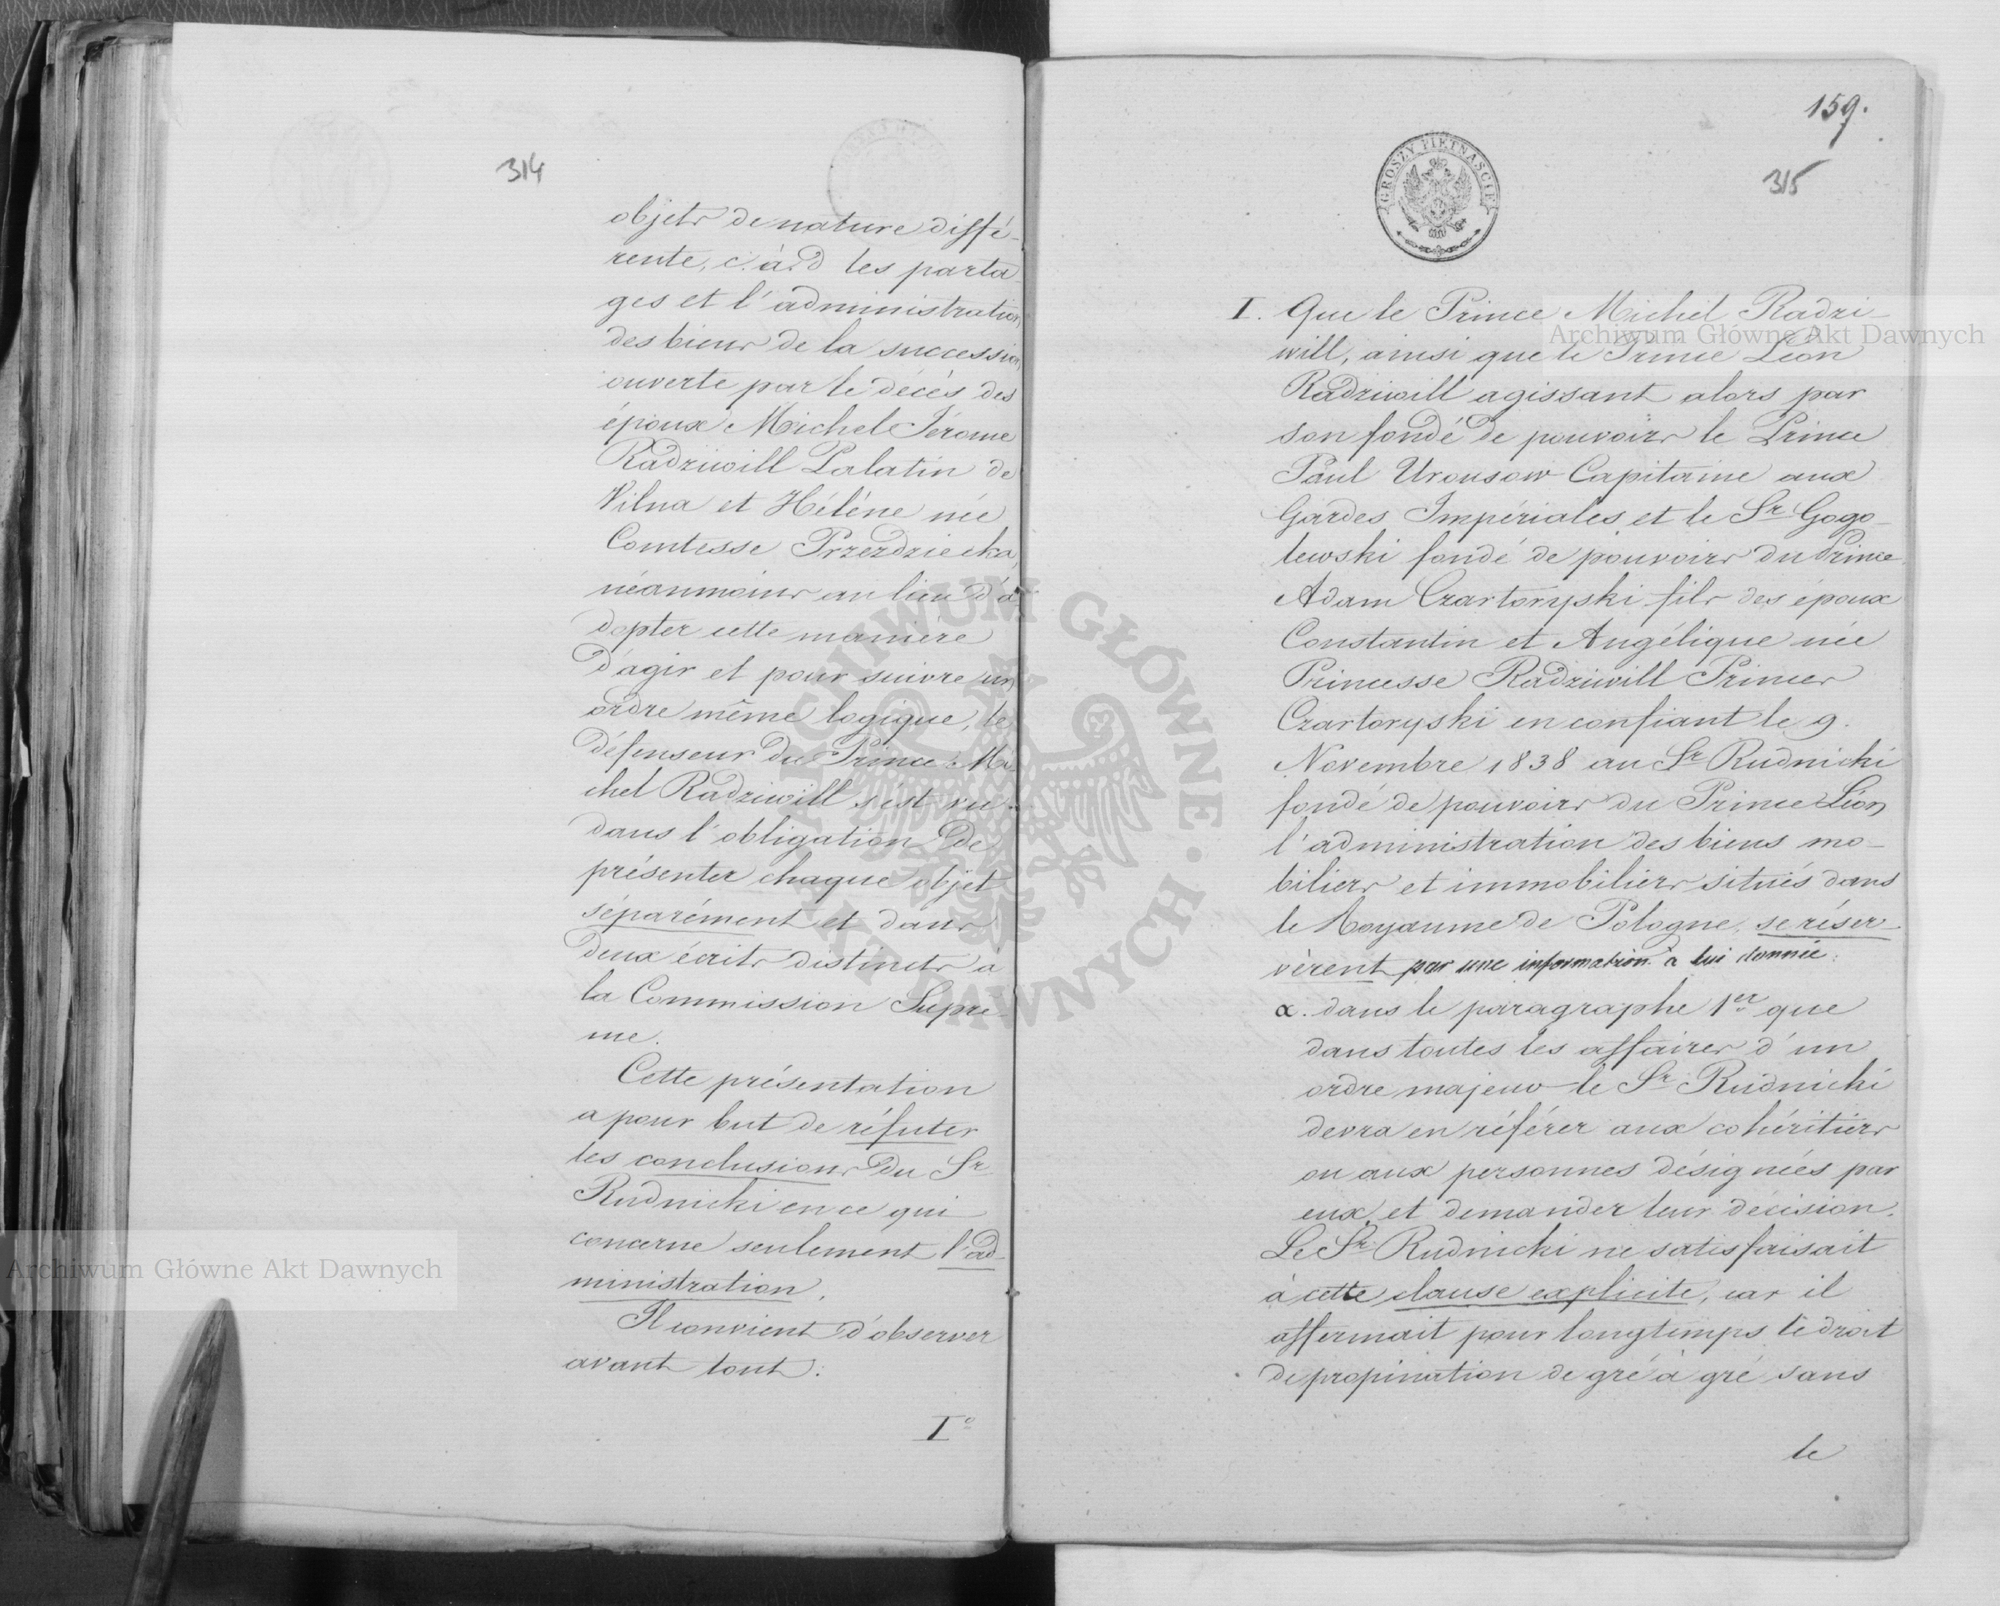 314
objets de nature diffé-
rente, c. à. d les parta-
ges et l'administration
des biens de la succession
ouverte par le décès des
époux Michel Jérome
Radziwill Palatin de
Vilna et Héléne née
Comtesse Przezdziecka,
néanmoins au lieu d'a-
dopter cette manière
d'agir et pour suivre un
ordre même logique, le
défenseur du Prince Mi-
chel Radziwill s'est vu
dans l'obligation de
présenter chaque objet
séparément et dans
deux écrits distincts à
la Commission Suprê-
me.
Cette présentation
a pour but de réfuter
les conclusions du Sr
Rudnicki en ce qui
concerne seulement l'ad-
ministration.
Il convient d'observer
avant tout:
I°
159.
315
GROSZY PIĘTNAŚCIE
I. Que le Prince Michel Radzi-
will, ainsi que le Prince Léon
Radziwill agissant alors par
son fondé de pouvoirs le Prince
Paul Urousow Capitaine aux
Gardes Impériales et le Sr Gogo-
lewski fondé de pouvoirs du Prince
Adam Czartoryski fils des époux
Constantin et Angélique née
Princesse Radziwill Princes
Czartoryski en confiant le 9.
Novembre 1838 au Sr Rudnicki
fondé de pouvoirs du Prince Léon
l'administration des biens mo-
biliers et immobiliers situés dans
le Royaume de Pologne, se réser-
vèrent par une information à lui donnée:
α. dans le paragraphe 1er que
dans toutes les affaires d'un
ordre majeur le Sr Rudnicki
devra en référer aux cohéritiers
ou aux personnes désignées par
eux et demander leur décision.
Le Sr Rudnicki ne satisfaisait
à cette clause explicite, car il
affermait pour longtemps le droit
de propination de gré à gré sans
le
Archiwum Główne Akt Dawnych
Archiwum Główne Akt Dawnych
ARCHIWUM GŁÓWNE AKT DAWNYCH